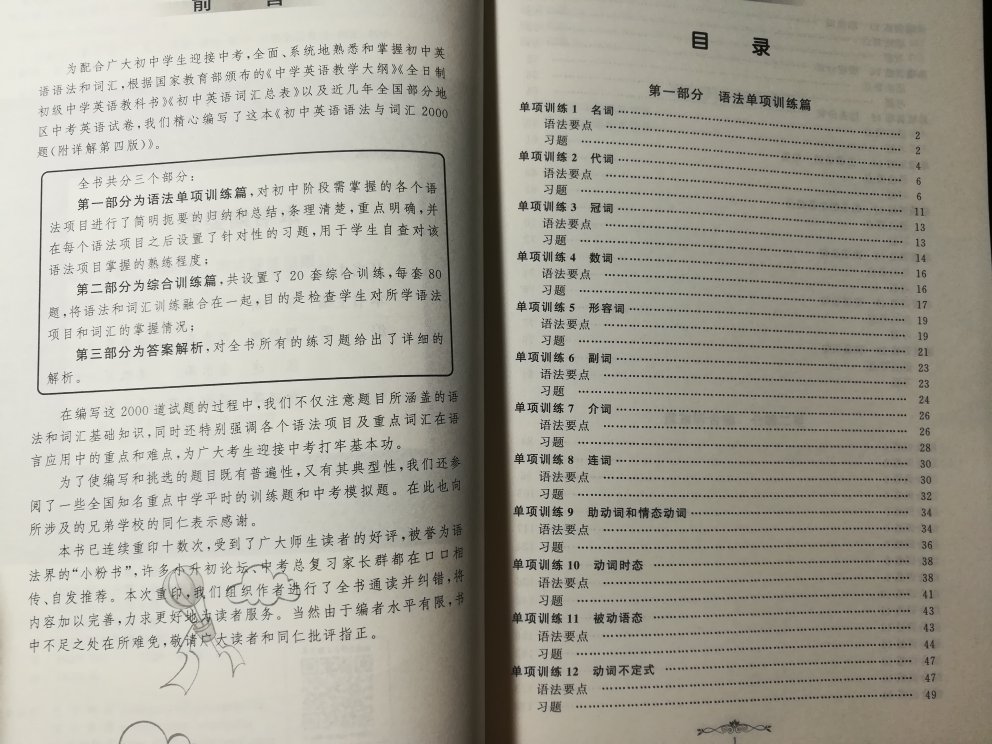 前 言
为配合广大初中学生迎接中考,全面、系统地熟悉和掌握初中英
语语法和词汇,根据国家教育部颁布的《中学英语教学大纲》《全日制
初级中学英语教科书》《初中英语词汇总表》以及近几年全国部分地
区中考英语试卷,我们精心编写了这本《初中英语语法与词汇 2000
题(附详解第四版)》。
全书共分三个部分:
第一部分为语法单项训练篇,对初中阶段需掌握的各个语
法项目进行了简明扼要的归纳和总结,条理清楚,重点明确,并
在每个语法项目之后设置了针对性的习题,用于学生自查对该
语法项目掌握的熟练程度;
第二部分为综合训练篇,共设置了 20 套综合训练,每套 80
题,将语法和词汇训练融合在一起,目的是检查学生对所学语法
项目和词汇的掌握情况;
第三部分为答案解析,对全书所有的练习题给出了详细的
解析。
在编写这 2000 道试题的过程中,我们不仅注意题目所涵盖的语
法和词汇基础知识,同时还特别强调各个语法项目及重点词汇在语
言应用中的重点和难点,为广大考生迎接中考打牢基本功。
为了使编写和挑选的题目既有普遍性,又有其典型性,我们还参
阅了一些全国知名重点中学平时的训练题和中考模拟题。在此也向
所涉及的兄弟学校的同仁表示感谢。
本书已连续重印十数次,受到了广大师生读者的好评,被誉为语
法界的“小粉书”,许多小升初论坛、中考总复习家长群都在口口相
传、自发推荐。本次重印,我们组织作者进行了全书通读并纠错,将
内容加以完善,力求更好地为读者服务。当然由于编者水平有限,书
中不足之处在所难免,敬请广大读者和同仁批评指正。
目 录
第一部分 语法单项训练篇
单项训练 1 名词 2
语法要点 2
习题 4
单项训练 2 代词 6
语法要点 6
习题 11
单项训练 3 冠词 13
语法要点 13
习题 14
单项训练 4 数词 16
语法要点 16
习题 17
单项训练 5 形容词 19
语法要点 19
习题 21
单项训练 6 副词 23
语法要点 23
习题 24
单项训练 7 介词 26
语法要点 26
习题 28
单项训练 8 连词 30
语法要点 30
习题 32
单项训练 9 助动词和情态动词 34
语法要点 34
习题 36
单项训练 10 动词时态 38
语法要点 38
习题 41
单项训练 11 被动语态 43
语法要点 43
习题 44
单项训练 12 动词不定式 47
语法要点 47
习题 49
1